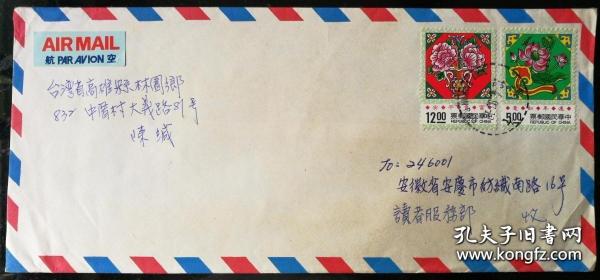 AIR MAIL
航 PAR AVION 空
台湾省高雄縣林園鄉
832 中厝村大義路81号
陳城
12.00
票郵國民華中
REPUBLIC OF CHINA
5.00
票郵國民華中
REPUBLIC OF CHINA
To: 246001
安徽省安慶市紡織南路16号
讀者服務部 收
孔夫子旧书网
www.kongfz.com